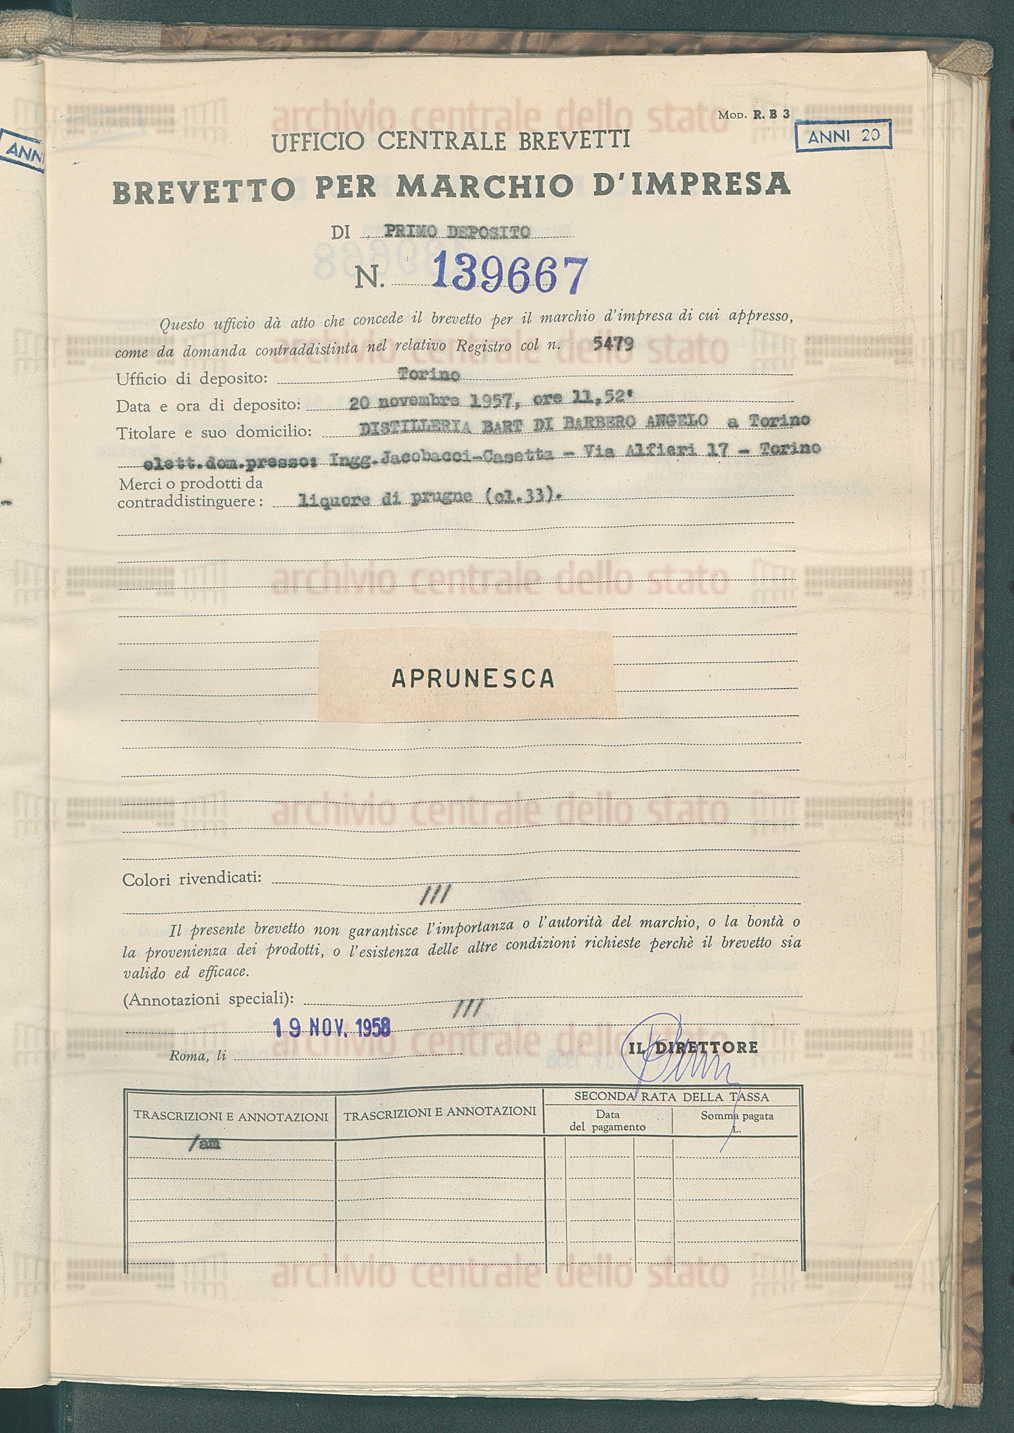 archivio centrale dello stato
Mod. R. B 3
ANNI 20
ANNI
UFFICIO CENTRALE BREVETTI
BREVETTO PER MARCHIO D'IMPRESA
DI PRIMO DEPOSITO
N. 139667
Questo ufficio dà atto che concede il brevetto per il marchio d'impresa di cui appresso,
come da domanda contraddistinta nel relativo Registro col n. 5479
Ufficio di deposito: Torino
Data e ora di deposito: 20 novembre 1957, ore 11,52'
Titolare e suo domicilio: DISTILLERIA BART DI BARBERO ANGELO a Torino
elett.dom.presso: Ingg.Jacobacci-Casetta - Via Alfieri 17 - Torino
Merci o prodotti da
contraddistinguere: liquore di prugne (cl.33).
archivio centrale dello stato
APRUNESCA
archivio centrale dello stato
Colori rivendicati:
///
Il presente brevetto non garantisce l'importanza o l'autorità del marchio, o la bontà o
la provenienza dei prodotti, o l'esistenza delle altre condizioni richieste perchè il brevetto sia
valido ed efficace.
(Annotazioni speciali): ///
19 NOV. 1958
archivio centrale dello stato
Roma, lì
IL DIRETTORE
TRASCRIZIONI E ANNOTAZIONI
TRASCRIZIONI E ANNOTAZIONI
SECONDA RATA DELLA TASSA
Data
del pagamento
Somma pagata
L.
/am
archivio centrale dello stato